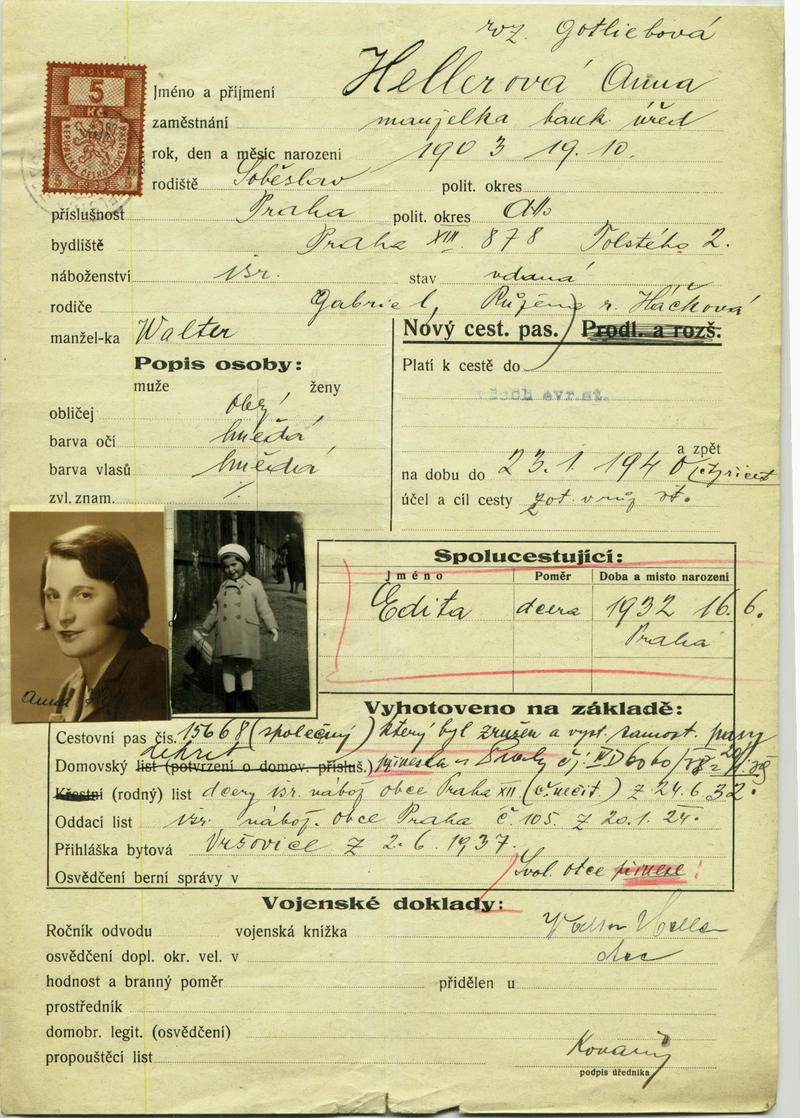 roz. Gotliebová
KOLEK
5
Kč
REPUBLIKA ČESKOSLOVENSKÁ
Jméno a příjmení Hellerová Anna
zaměstnání manželka bank. úřed
rok, den a měsíc narození 1903 19. 10.
rodiště Soběslav polit. okres
příslušnost Praha polit. okres
bydliště Praha XIII. 878 Tolstého 2.
náboženství isr. stav vdaná
rodiče Gabriel, Růžena r. Háčková
manžel-ka Walter
Nový cest. pas. Prodl. a rozš.
Popis osoby:
Platí k cestě do
muže ženy
všech evr. st.
obličej
barva očí hnědá
barva vlasů hnědá
a zpět
na dobu do 23. 1. 1940 čtyřicet
zvl. znam. ⁒
účel a cíl cesty
Spolucestující:
Jméno Poměr Doba a misto narozeni
Edita dcera 1932 16. 6.
Praha
Anna
Vyhotoveno na základě:
Cestovní pas čís. 15668 (společný) který byl zrušen a vyst. samost. pasy
dekret
Domovský list (potvrzení o domov. přísluš.)
Křestní (rodný) list dcery isr. nábož. obce Praha XII (č. nečit.) z 24. 6. 32.
Oddací list isr. nábož. obce Praha č. 105. z 20. 1. 24.
Přihláška bytová Vršovice z 2. 6. 1937.
Osvědčení berní správy v Svol. otce přinese!
Vojenské doklady:
Ročník odvodu vojenská knížka Walter Heller
osvědčení dopl. okr. vel. v otec
hodnost a branný poměr přidělen u
prostředník
domobr. legit. (osvědčení)
propouštěcí list
podpis úředníka